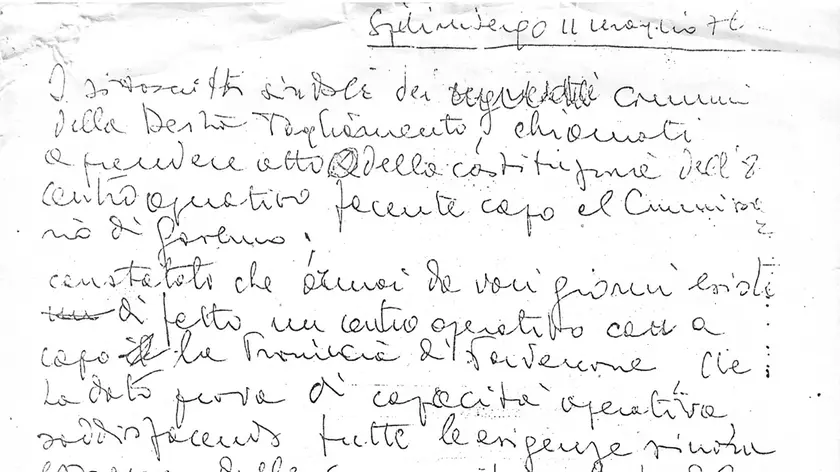 Spilimbergo 11 maggio 76
I sottoscritti sindaci dei comuni
della Destra Tagliamento, chiamati
a prendere atto della costituzione dell'
centro operativo facente capo al Commissa
rio di Governo;
constatato che ormai da vari giorni esiste
di fatto un centro operativo con a
capo la Provincia di Pordenone che
ha dato prova di capacità operativa,
soddisfacendo tutte le esigenze sinora